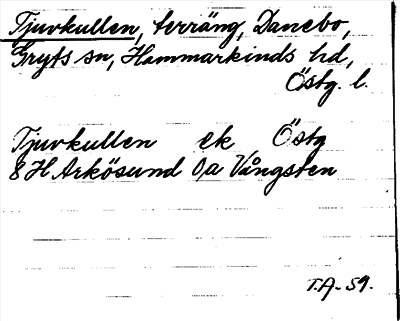 Tjurkullen, terräng, Danebo,
Gryts sn, Hammarkinds hd,
Östg. l.
Tjurkullen ek Östg
8 H Arkösund 0/a Vångsten
T.A. 59.